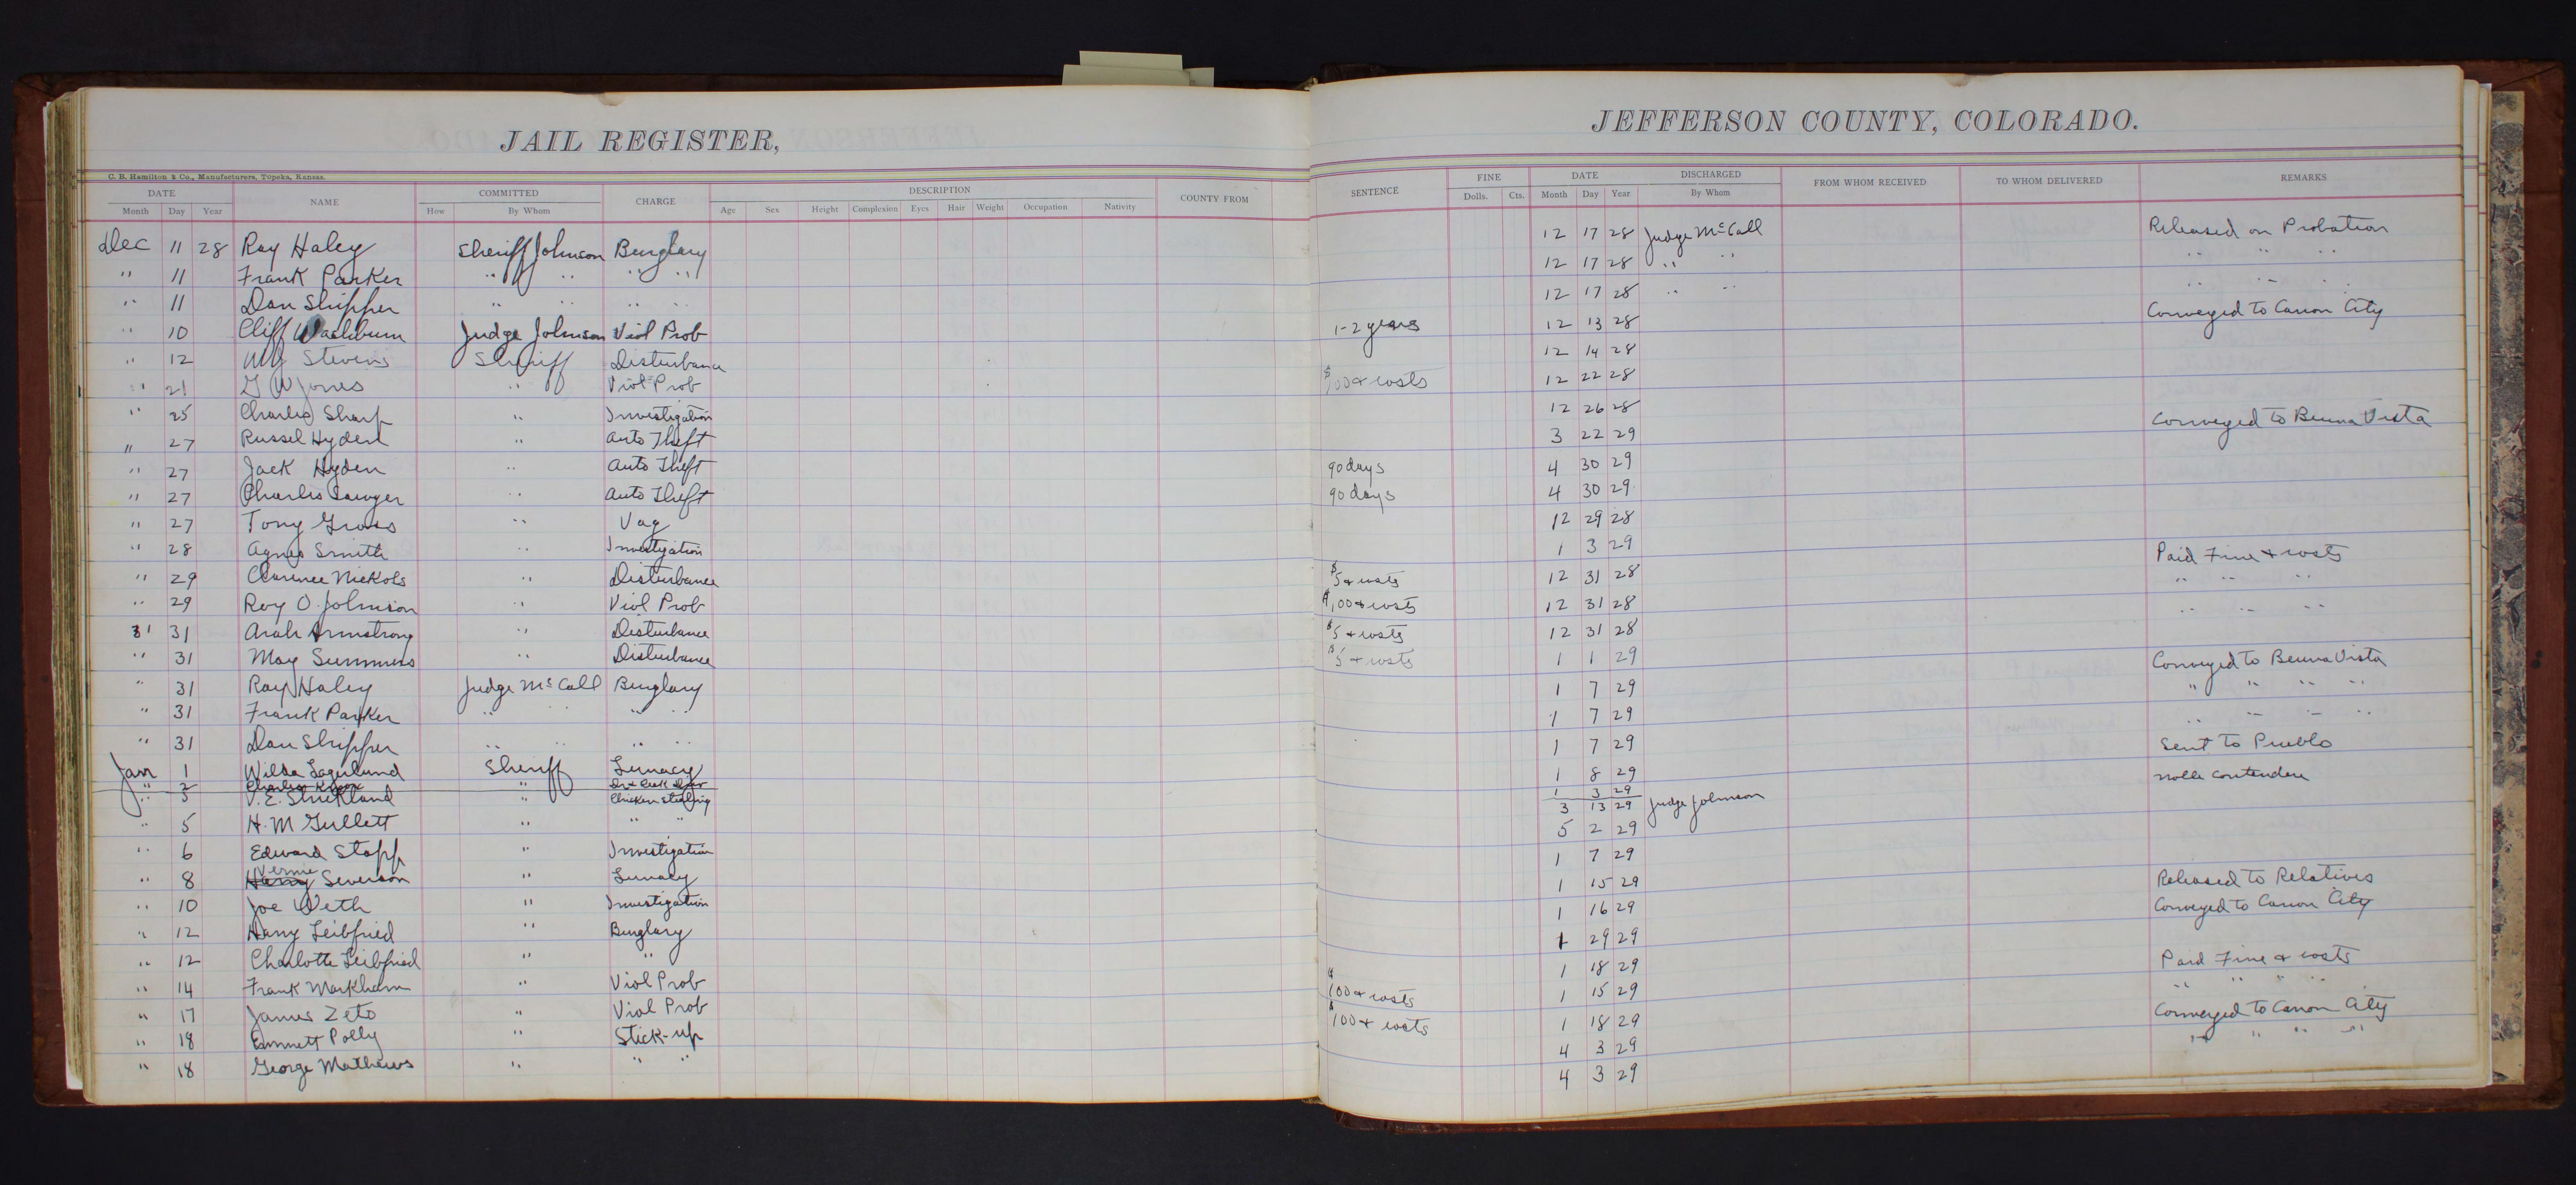 JAIL REGISTER,
C. B. Hamilton & Co., Manufacturers, Topeka, Kansas.
DATE NAME COMMITTED CHARGE DESCRIPTION COUNTY FROM
Month Day Year How By Whom Age Sex Height Complexion Eyes Hair Weight Occupation Nativity
Dec 11 28 Ray Haley Sheriff Johnson Burglary
" 11 Frank Parker " " " "
" 11 Dan Shipper " " " "
" 10 Cliff Washburn Judge Johnson Viol Prob
" 12 Stevens Sheriff Disturbance
" 21 G W Jones " Viol Prob
" 25 Charles Sharp " Investigation
" 27 Russel Hyden " Auto Theft
" 27 Jack Hyden " Auto Theft
" 27 Charles Sawyer " Auto Theft
" 27 Tony Gross " Vag
" 28 Agnes Smith " Investigation
" 29 Clarence Nickols " Disturbance
" 29 Roy O. Johnson " Viol Prob
" 31 Armstrong " Disturbance
" 31 May Summers " Disturbance
" 31 Ray Haley Judge McCall Burglary
" 31 Frank Parker " " " "
" 31 Dan Shipper " " " "
Jan 1 Wilda Lagerlund Sheriff Lunacy
" 2 Charles "
" 3 V. E. Strickland " Chicken stealing
" 5 H. M Gullett " " "
" 6 Edward Stapp " Investigation
" 8 Harry Vernie Severson " Lunacy
" 10 Joe Weth " Investigation
" 12 Harry Leibfried " Burglary
" 12 Charlotte Leibfried " "
" 14 Frank Markham " Viol Prob
" 17 James Zeto " Viol Prob
" 18 Emmett Polly " Stick-up
" 18 George Mathews " " "
JEFFERSON COUNTY, COLORADO.
SENTENCE FINE DATE DISCHARGED FROM WHOM RECEIVED TO WHOM DELIVERED REMARKS
Dolls. Cts. Month Day Year By Whom
12 17 28 Judge McCall Released on Probation
12 17 28 " " " " "
12 17 28 " " " " "
1-2 years 12 13 28 Conveyed to Canon City
12 14 28
$100 & costs 12 22 28
12 26 28
3 22 29 Conveyed to Beuna Vista
90 days 4 30 29
90 days 4 30 29
12 29 28
1 3 29
$5 & costs 12 31 28 Paid Fine & costs
$100 & costs 12 31 28 " " "
$5 & costs 12 31 28 " " "
$5 & costs 1 1 29
1 7 29 Conveyed to Beuna Vista
1 7 29 " " " "
1 7 29 " " " "
1 8 29 Sent to Pueblo
1 3 29
3 13 29 Judge Johnson nolle contendere
5 2 29
1 7 29
1 15 29
1 16 29 Released to Relatives
1 29 29 Conveyed to Canon City
1 18 29
$100 & costs 1 15 29 Paid Fine & costs
$100 & costs 1 18 29 " " "
4 3 29 Conveyed to Canon City
4 3 29 " " " "